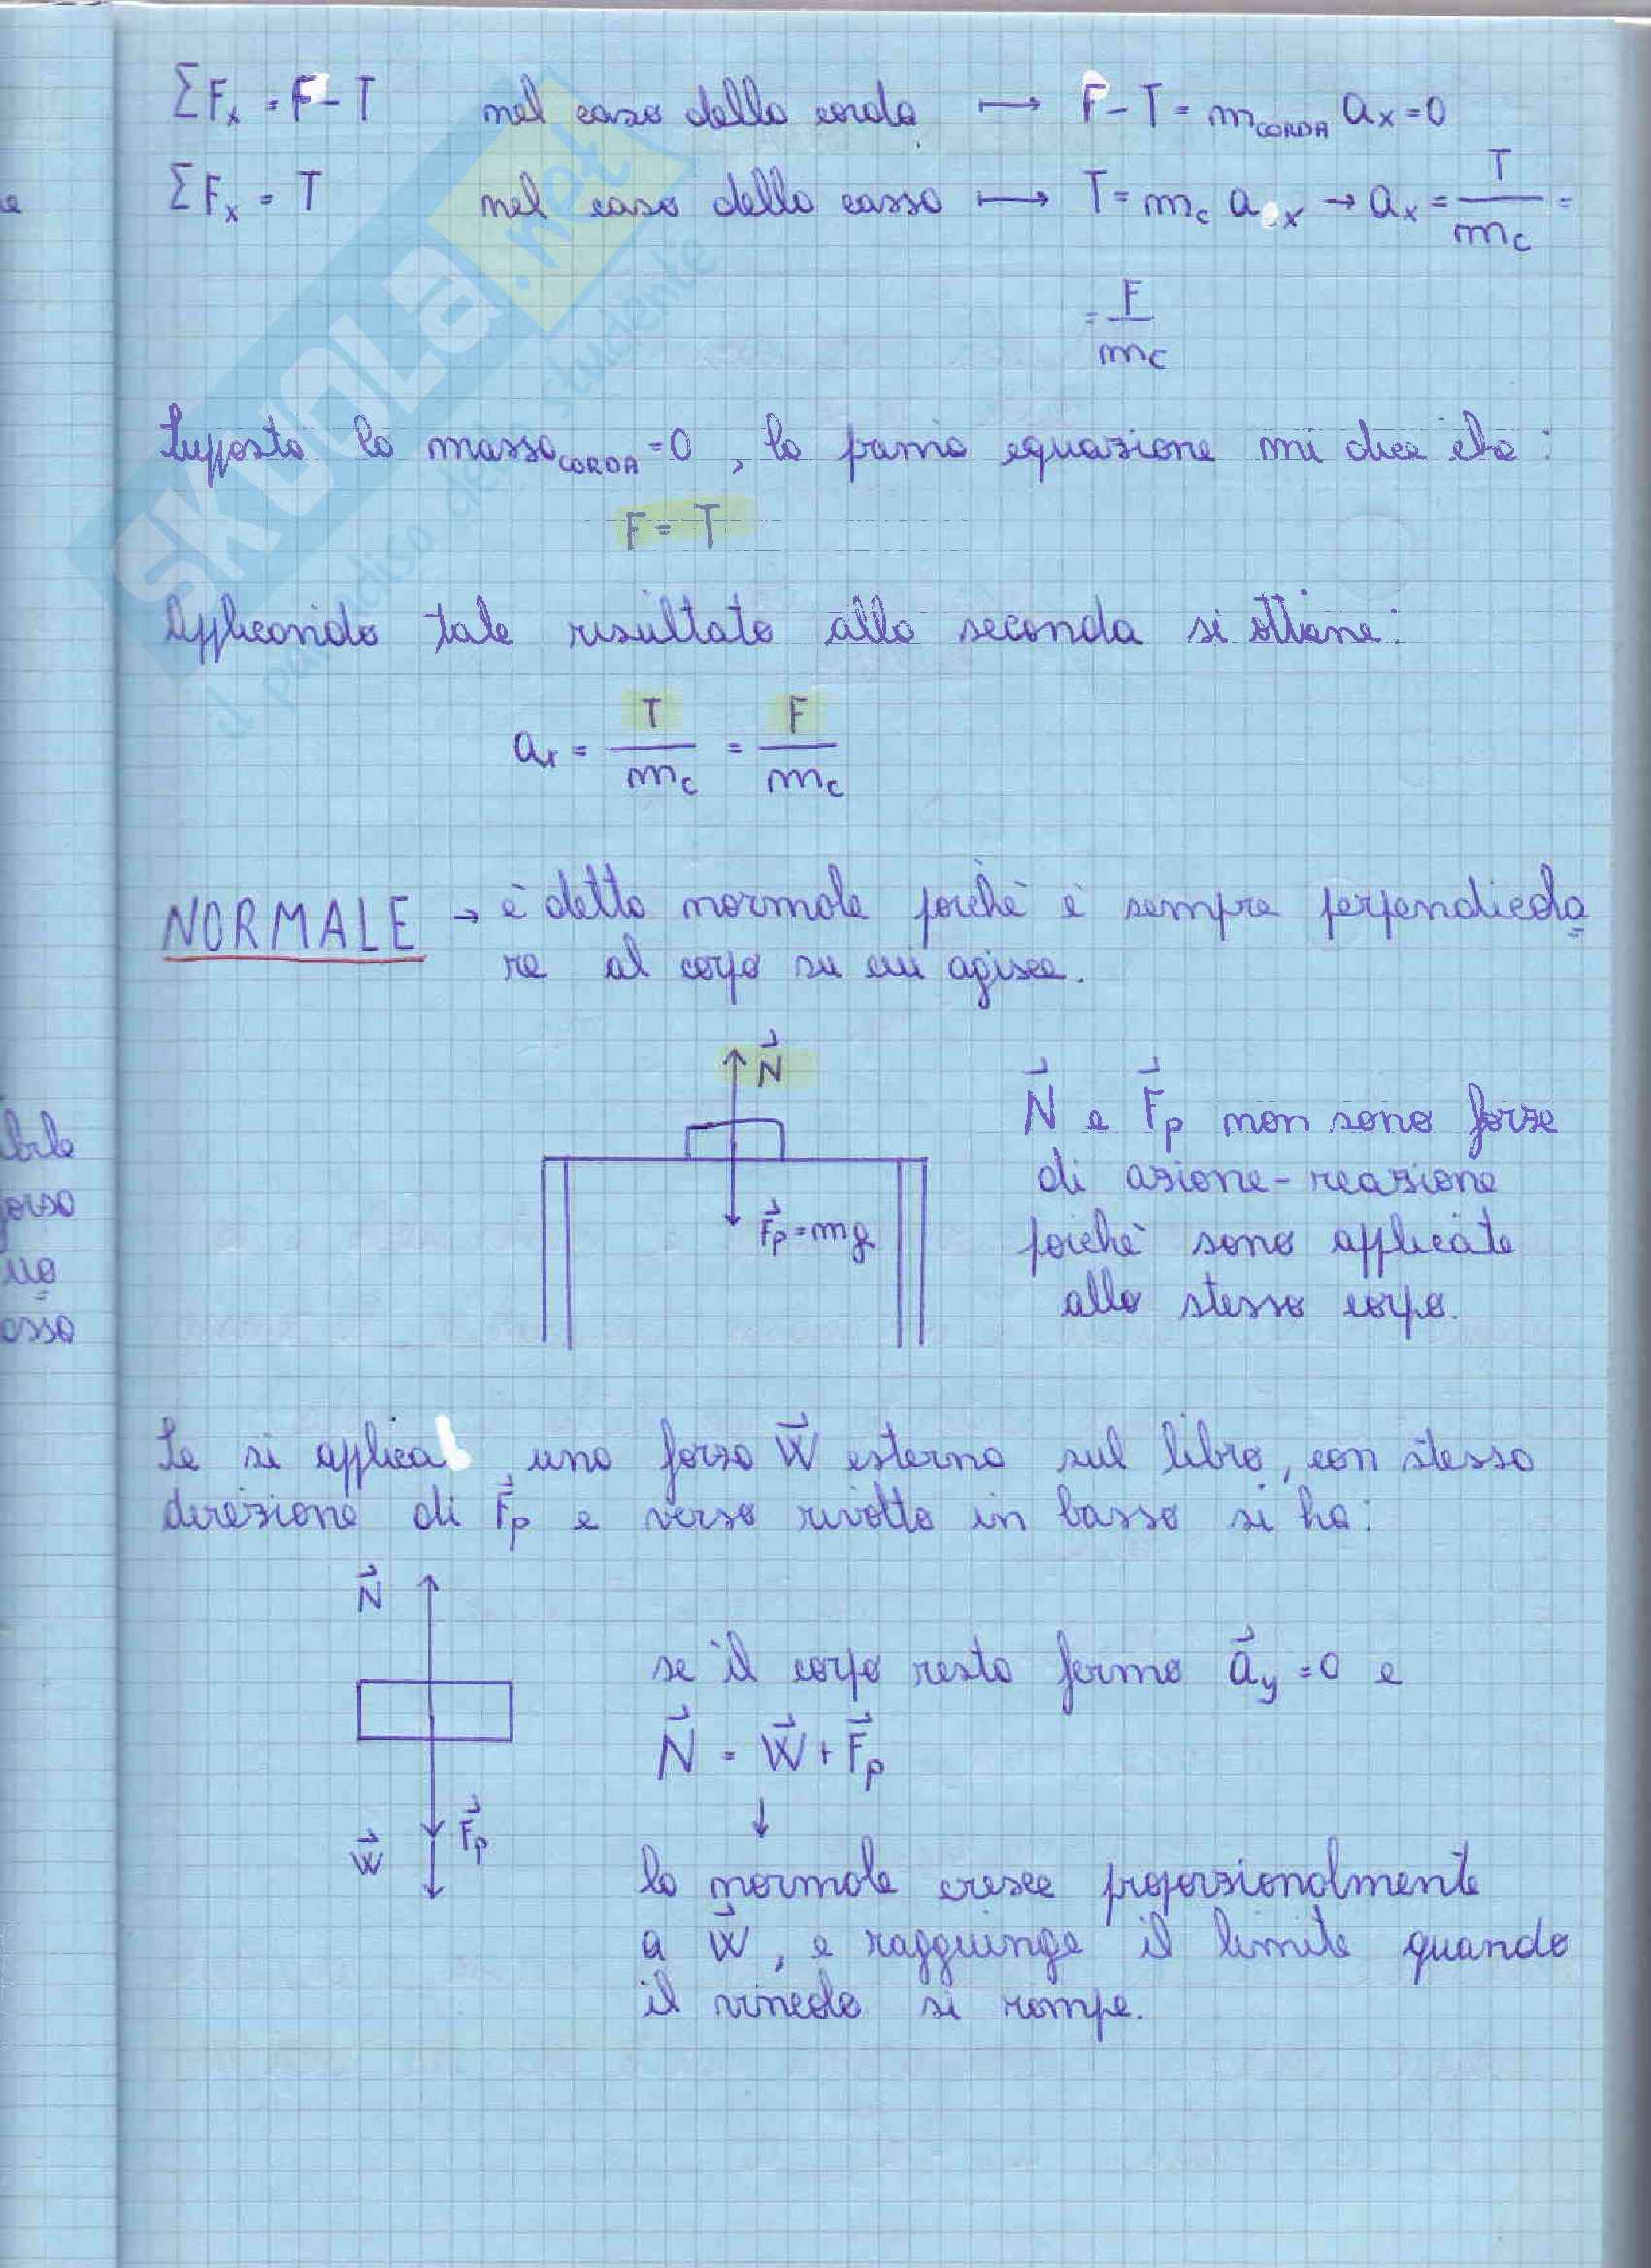 ΣFx = F - T nel caso della corda ⟼ F - T = mCORDA ax = 0
ΣFx = T nel caso della cassa ⟼ T = mc ax → ax = T/mc =
= F/mc
Supposta la massaCORDA = 0, la prima equazione mi dice che:
F = T
Applicando tale risultato alla seconda si ottiene:
ax = T/mc = F/mc
NORMALE → è detta normale poichè è sempre perpendicola=
re al corpo su cui agisce.
N⃗
F⃗p = mg
N⃗ e F⃗p non sono forze
di azione-reazione
poichè sono applicate
allo stesso corpo.
Se si applica una forza W⃗ esterna sul libro, con stessa
direzione di F⃗p e verso rivolto in basso si ha:
N⃗
F⃗p
W⃗
se il corpo resta fermo a⃗y = 0 e
N⃗ = W⃗ + F⃗p
↓
la normale cresce proporzionalmente
a W⃗, e raggiunge il limite quando
il vincolo si rompe.
SKUOLA.net
il paradiso dello studente